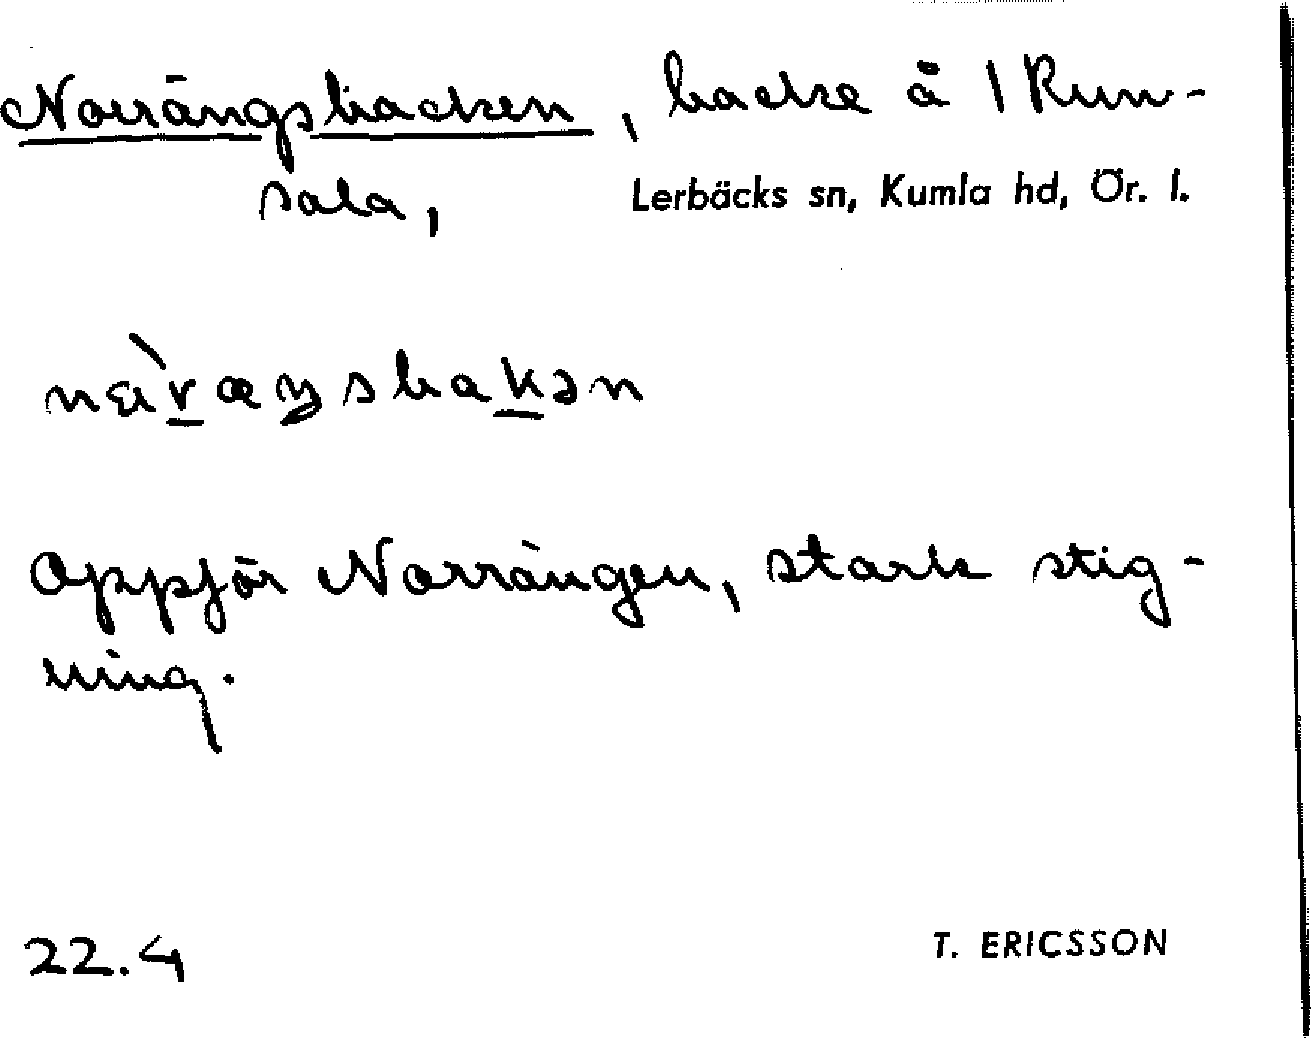 Norrängsbacken, backe å 1 Run-
sala, Lerbäcks sn, Kumla hd, Ör. l.
Oppför Norrängen, stark stig-
ning.
22.4 T. ERICSSON